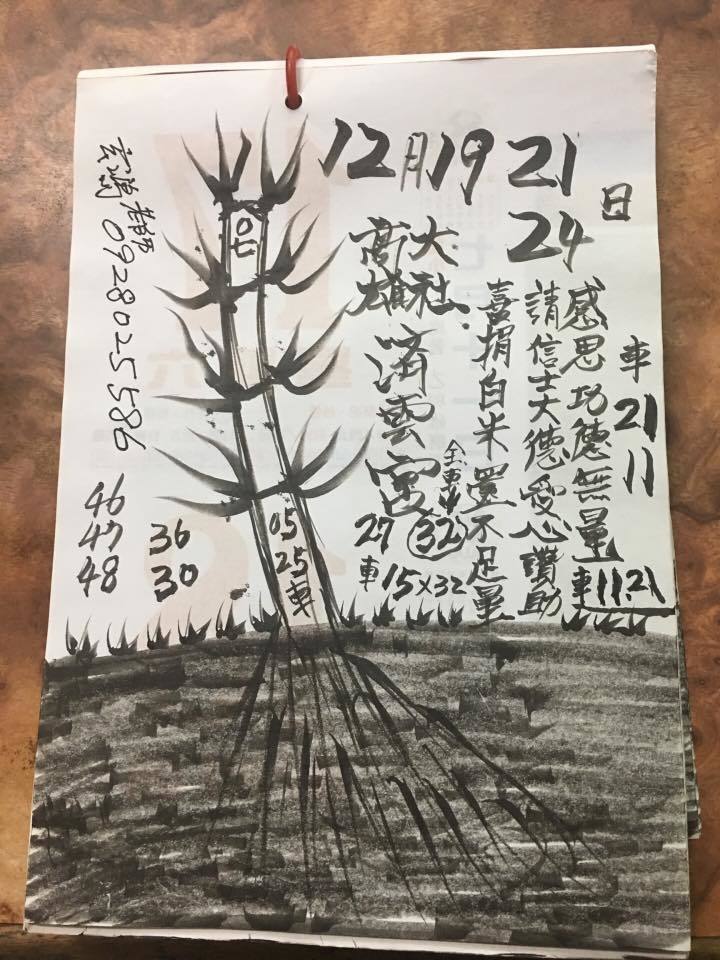 12月19 21 24日
車21 11
感恩功德無量
車11.21
請信士大德愛心讚助
喜捐白米還不足量
高雄大社
濟雲宮
全車
32
27車
15×32
07
05
25車
0928025586
46
47
48
36
30